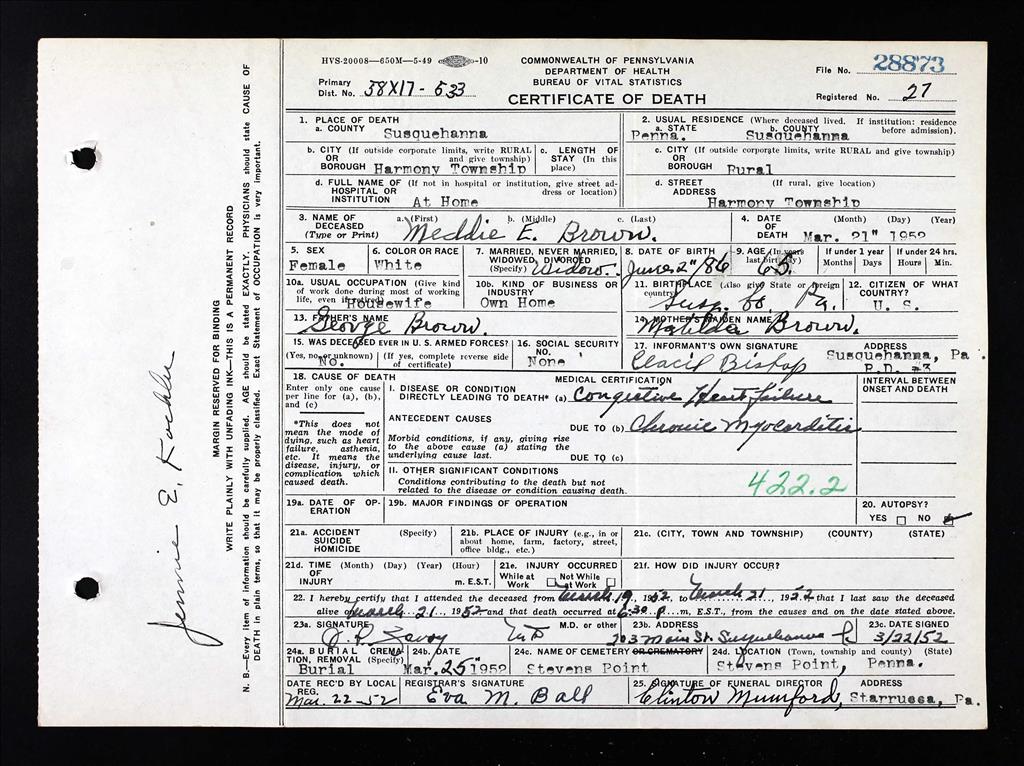 HVS-20008—650M—5-49 -10
COMMONWEALTH OF PENNSYLVANIA
DEPARTMENT OF HEALTH
BUREAU OF VITAL STATISTICS
CERTIFICATE OF DEATH
File No. 28873
Primary
Dist. No. 58X17 - 533
Registered No. 27
1. PLACE OF DEATH
a. COUNTY Susquehanna
2. USUAL RESIDENCE (Where deceased lived. If institution: residence before admission).
a. STATE Penna. b. COUNTY Susquehanna
b. CITY (If outside corporate limits, write RURAL
OR and give township)
BOROUGH Harmony Township
c. LENGTH OF
STAY (In this
place)
c. CITY (If outside corporate limits, write RURAL and give township)
OR
BOROUGH Rural
d. FULL NAME OF (If not in hospital or institution, give street ad-
HOSPITAL OR dress or location)
INSTITUTION At Home
d. STREET (If rural, give location)
ADDRESS
Harmony Township
3. NAME OF
DECEASED
(Type or Print)
a. (First) b. (Middle) c. (Last)
Meddie E. Brown.
4. DATE (Month) (Day) (Year)
OF
DEATH Mar. 21" 1952
5. SEX
Female
6. COLOR OR RACE
White
7. MARRIED, NEVER MARRIED,
WIDOWED, DIVORCED
(Specify) Widow.
8. DATE OF BIRTH
June 2" /86
9. AGE (In years
last birthday)
65.
If under 1 year
Months Days
If under 24 hrs.
Hours Min.
10a. USUAL OCCUPATION (Give kind
of work done during most of working
life, even if retired)
Housewife
10b. KIND OF BUSINESS OR
INDUSTRY
Own Home
11. BIRTHPLACE (Also give State or foreign
country)
Susq. Co Pa.
12. CITIZEN OF WHAT
COUNTRY?
U. S.
13. FATHER'S NAME
George Brown.
14. MOTHER'S MAIDEN NAME
Matilda Brown.
15. WAS DECEASED EVER IN U. S. ARMED FORCES?
(Yes, no, or unknown) (If yes, complete reverse side
of certificate)
No.
16. SOCIAL SECURITY
NO.
None
17. INFORMANT'S OWN SIGNATURE ADDRESS
Bishop Susquehanna, Pa.
R.D. #3
18. CAUSE OF DEATH
Enter only one cause
per line for (a), (b),
and (c)
*This does not
mean the mode of
dying, such as heart
failure, asthenia,
etc. It means the
disease, injury, or
complication which
caused death.
MEDICAL CERTIFICATION
INTERVAL BETWEEN
ONSET AND DEATH
I. DISEASE OR CONDITION
DIRECTLY LEADING TO DEATH* (a) Congestive Heart failure
ANTECEDENT CAUSES
DUE TO (b) Chronic Myocarditis
Morbid conditions, if any, giving rise
to the above cause (a) stating the
underlying cause last. DUE TO (c)
II. OTHER SIGNIFICANT CONDITIONS
Conditions contributing to the death but not
related to the disease or condition causing death.
422.2
19a. DATE OF OP-
ERATION
19b. MAJOR FINDINGS OF OPERATION
20. AUTOPSY?
YES NO
21a. ACCIDENT (Specify)
SUICIDE
HOMICIDE
21b. PLACE OF INJURY (e.g., in or
about home, farm, factory, street,
office bldg., etc.)
21c. (CITY, TOWN AND TOWNSHIP) (COUNTY) (STATE)
21d. TIME (Month) (Day) (Year) (Hour)
OF
INJURY m. E.ST.
21e. INJURY OCCURRED
While at Not While
Work at Work
21f. HOW DID INJURY OCCUR?
22. I hereby certify that I attended the deceased from March 19, 1952, to March 21, 1952 that I last saw the deceased
alive on March 21, 1952 and that death occurred at 6:30 P. m., E.S.T., from the causes and on the date stated above.
23a. SIGNATURE M.D. or other
Savoy MD
23b. ADDRESS
203 Main St. Susquehanna
23c. DATE SIGNED
3/22/52
24a. BURIAL CREMA-
TION, REMOVAL (Specify)
Burial
24b. DATE
Mar. 25" 1952
24c. NAME OF CEMETERY OR CREMATORY
Stevens Point
24d. LOCATION (Town, township and county) (State)
Stevens Point, Penna.
DATE REC'D BY LOCAL
REG.
Mar. 22-52
REGISTRAR'S SIGNATURE
Eva M. Ball
25. SIGNATURE OF FUNERAL DIRECTOR ADDRESS
Clinton Mumford, Starrucca, Pa.
MARGIN RESERVED FOR BINDING
WRITE PLAINLY WITH UNFADING INK—THIS IS A PERMANENT RECORD
N. B.—Every item of information should be carefully supplied. AGE should be stated EXACTLY. PHYSICIANS should state CAUSE OF
DEATH in plain terms, so that it may be properly classified. Exact Statement of OCCUPATION is very important.
Jennie E.